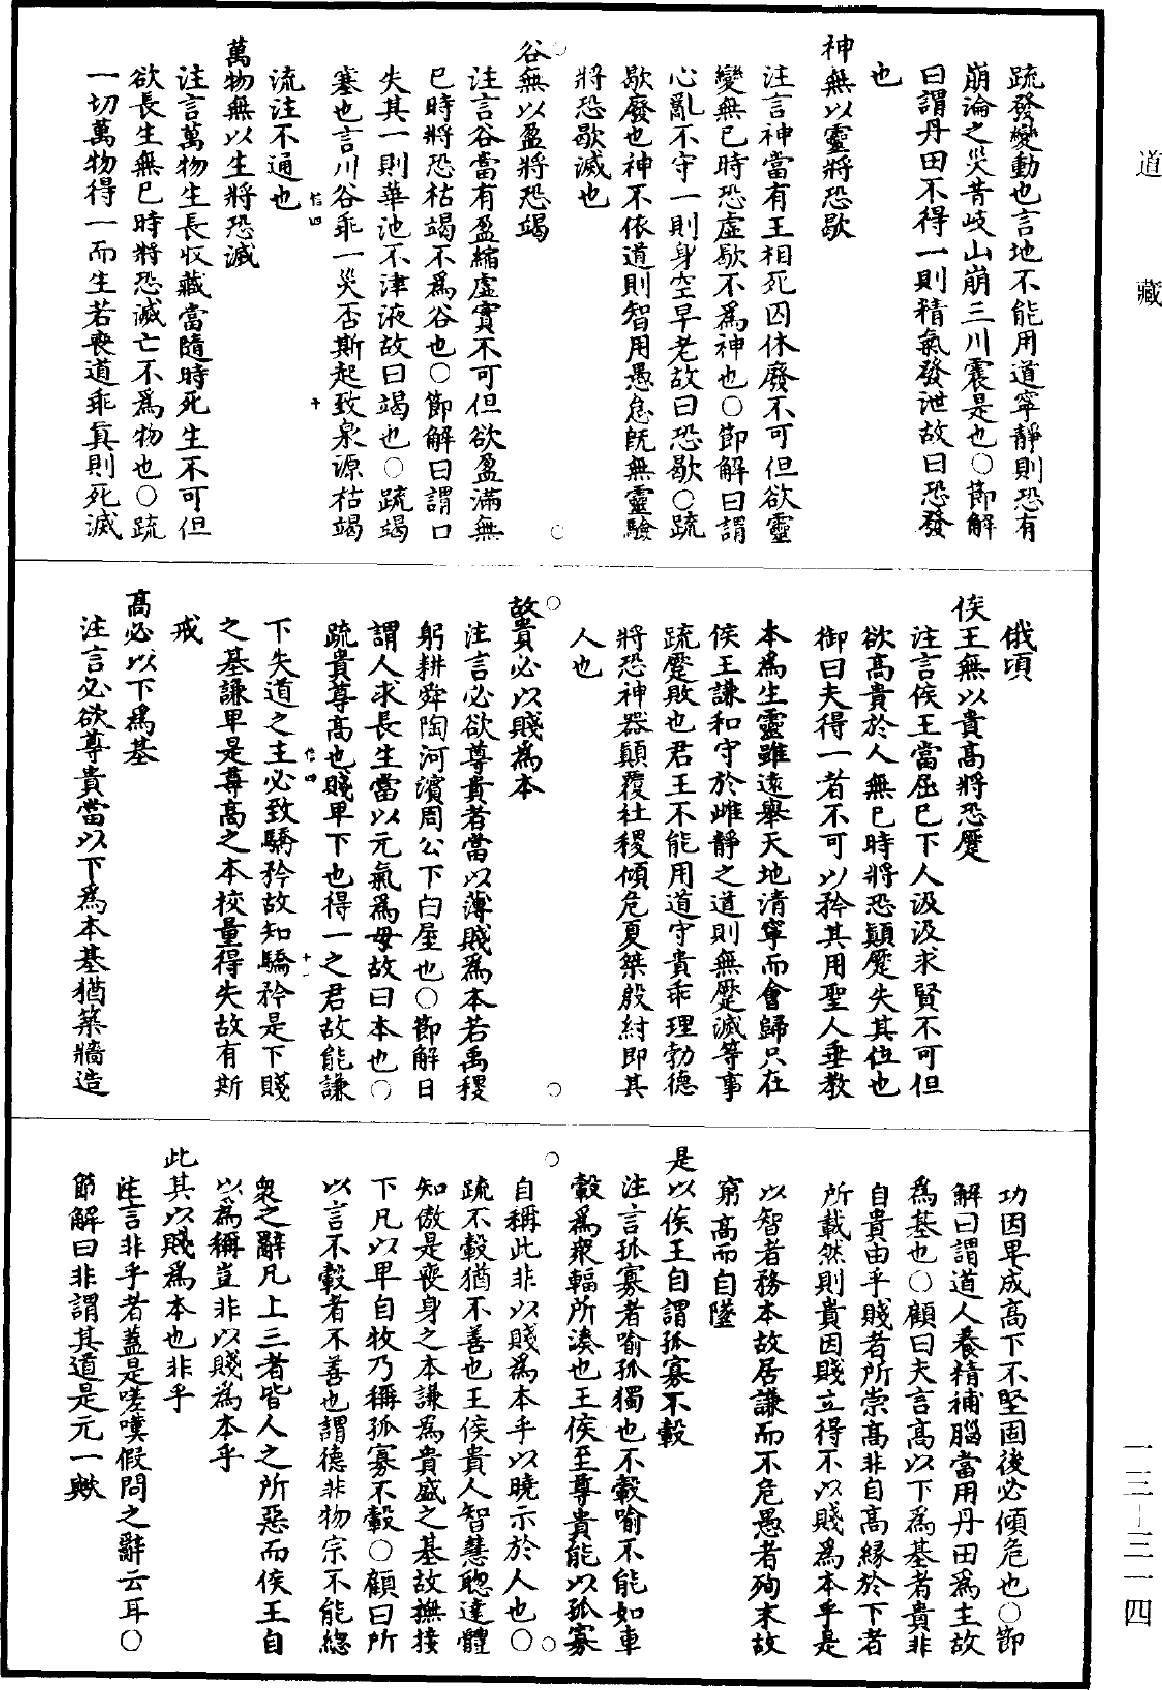 道藏
疏發變動也言地不能用道寧靜則恐有
崩淪之災昔岐山崩三川震是也○節解
曰謂丹田不得一則精氣發泄故曰恐發
也
神無以靈將恐歇
注言神當有王相死囚休廢不可但欲靈
變無已時恐虛歇不為神也○節解曰謂
心亂不守一則身空早老故曰恐歇○疏
歇廢也神不依道則智用愚怠既無靈驗
將恐歇滅也
谷無以盈將恐竭
注言谷當有盈縮虛實不可但欲盈滿無
已時將恐枯竭不為谷也○節解曰謂口
失其一則華池不津液故曰竭也○疏竭
塞也言川谷乖一災否斯起致泉源枯竭
流注不通也
萬物無以生將恐滅
注言萬物生長收藏當隨時死生不可但
欲長生無已時將恐滅亡不為物也○疏
一切萬物得一而生若喪道乖真則死滅
俄頃
侯王無以貴高將恐蹷
注言侯王當屈己下人汲汲求賢不可但
欲高貴於人無已時將恐顛蹷失其位也
御曰夫得一者不可以矜其用聖人垂教
本為生靈雖遠舉天地清寧而會歸只在
侯王謙和守於雌靜之道則無蹷滅等事
疏蹷敗也君王不能用道守貴乖理勃德
將恐神器顛覆社稷傾危夏桀殷紂即其
人也
故貴必以賤為本
注言必欲尊貴者當以薄賤為本若禹稷
躬耕舜陶河濱周公下白屋也○節解曰
謂人求長生當以元氣為母故曰本也○
疏貴尊高也賤卑下也得一之君故能謙
下失道之主必致驕矜故知驕矜是下賤
之基謙卑是尊高之本校量得失故有斯
戒
高必以下為基
注言必欲尊貴當以下為本基猶築牆造
功因卑成高下不堅固後必傾危也○節
解曰謂道人養精補腦當用丹田為主故
為基也○顧曰夫言高以下為基者貴非
自貴由乎賤者所崇高非自高緣於下者
所載然則貴因賤立得不以賤為本乎是
以智者務本故居謙而不危愚者殉末故
窮高而自墜
是以侯王自謂孤寡不轂
注言孤寡者喻孤獨也不轂喻不能如車
轂為眾輻所湊也王侯至尊貴能以孤寡
自稱此非以賤為本乎以曉示於人也○
疏不轂猶不善也王侯貴人智慧聰達體
知傲是喪身之本謙為貴盛之基故撫接
下凡以卑自牧乃稱孤寡不轂○顧曰所
以言不轂者不善也謂德非物宗不能總
眾之辭凡上三者皆人之所惡而侯王自
以為稱豈非以賤為本乎
此其以賤為本也非乎
注言非乎者蓋是嗟嘆假問之辭云耳○
節解曰非謂其道是元一歟
一三—三一四